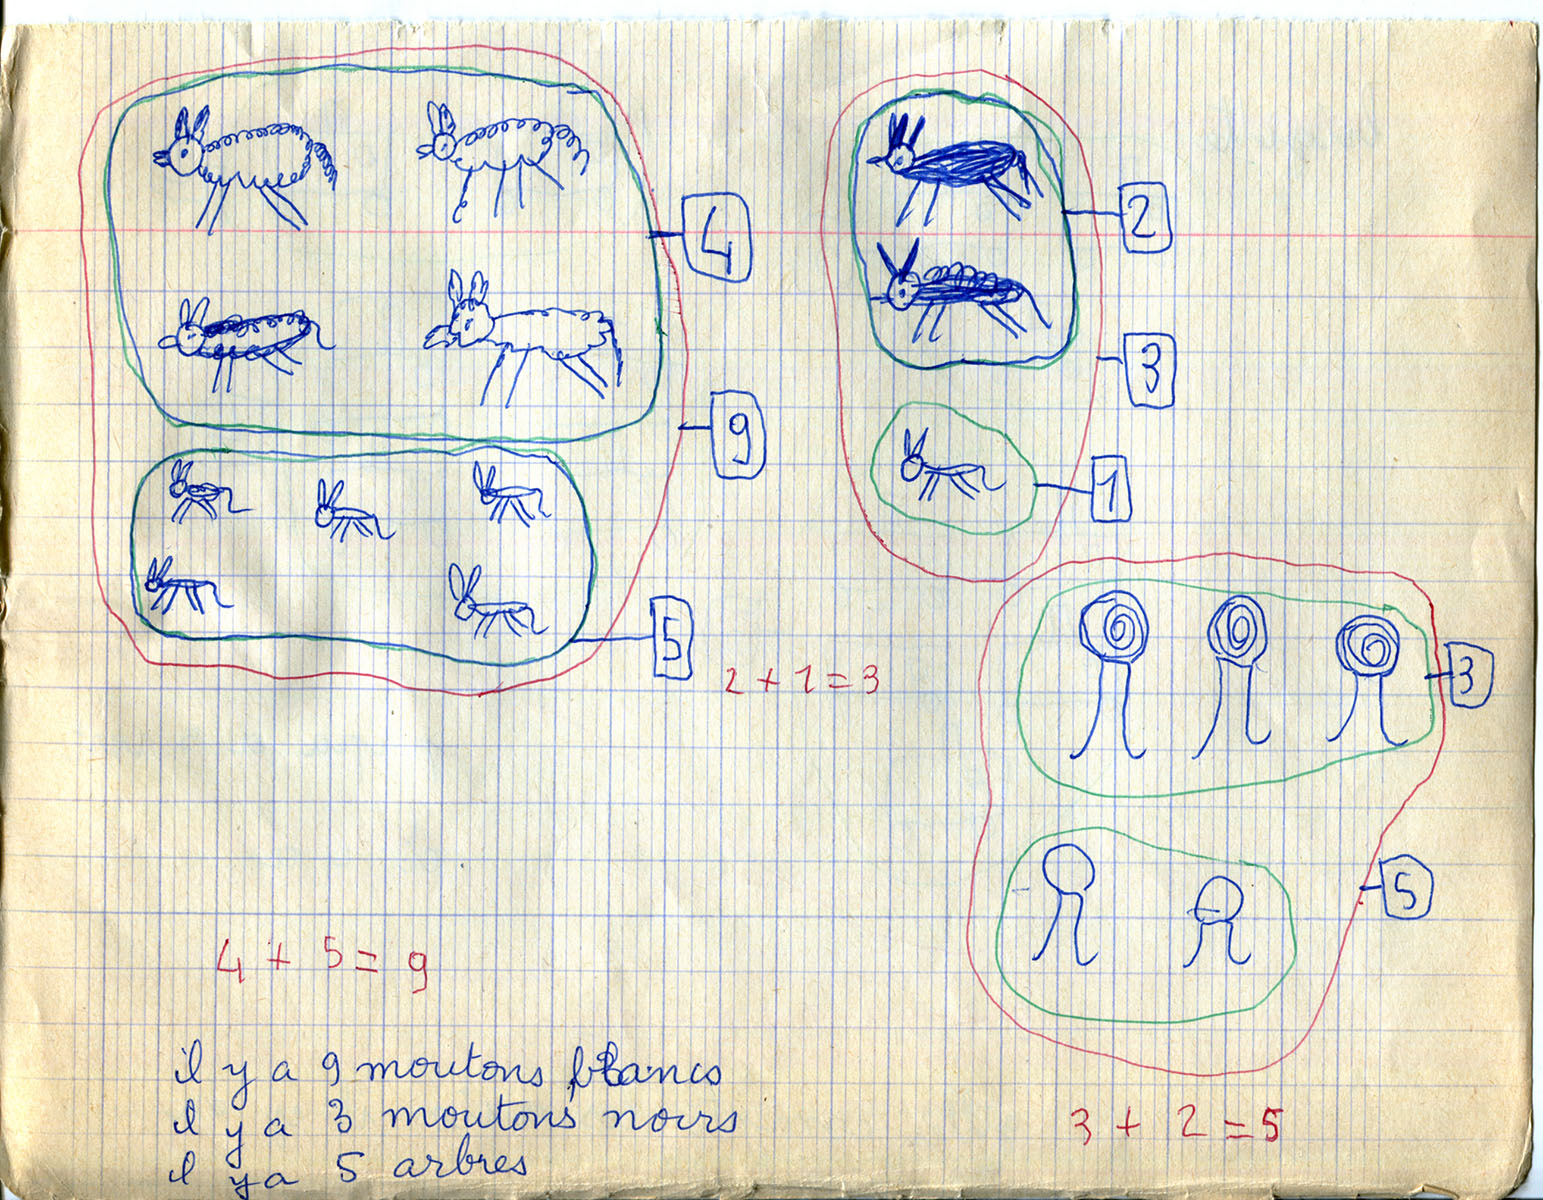 4
2
3
9
1
5
2 + 1 = 3
3
5
4 + 5 = 9
il y a 9 moutons blancs
il y a 3 moutons noirs
3 + 2 = 5
il y a 5 arbres